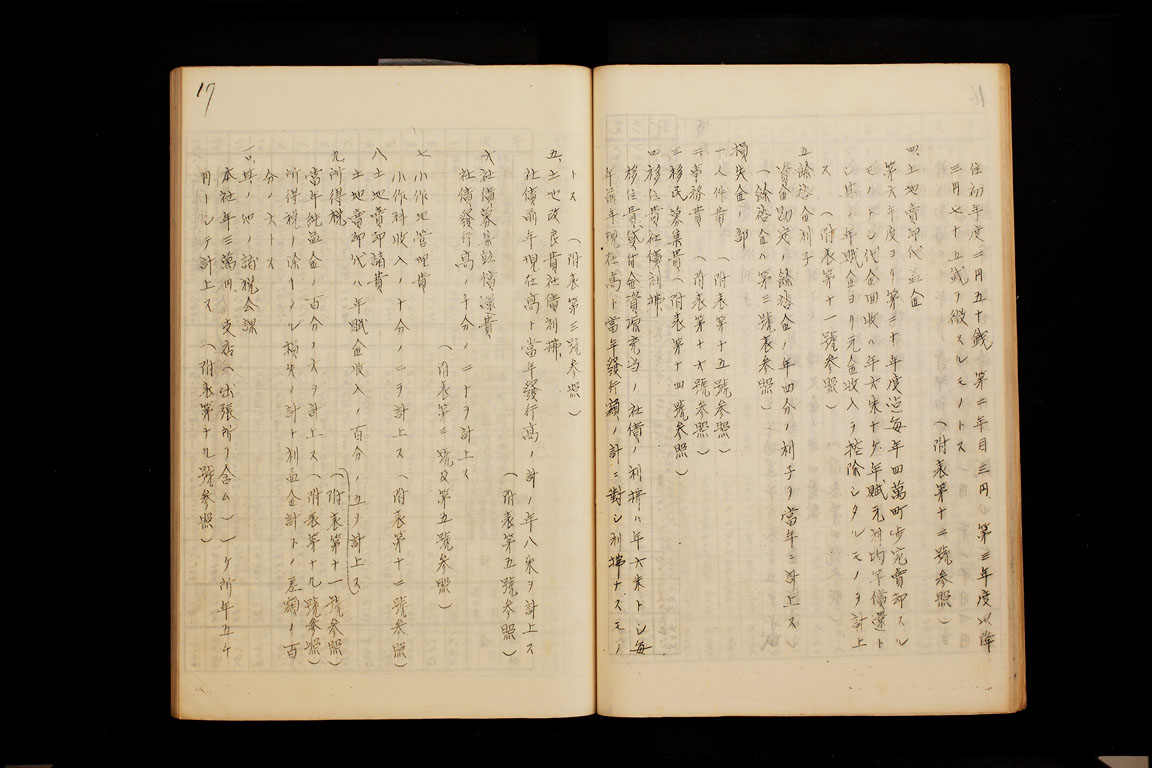 住初年度二月五十錢、第二年目三円、第三年度以降
三円七十五錢ヲ徴スルモノトス
(附表第十二號参照)
四、土地賣却代益金
第六年度ヨリ第三十年度迄毎年四萬町歩宛賣却スル
モノトシ代金回收ハ年六朱十ケ年賦元利均等償還ト
シ其ノ年賦金ヨリ元金收入ヲ控除シタルモノヲ計上
ス (附表第十一號参照)
五、餘裕金利子
資金勘定ノ餘裕金ノ年四分ノ利子ヲ當年ニ計上スシ
(餘裕金ハ第三號表参照)
損失金ノ部
一、人件費 (附表第十五號参照)
二、事務費 (附表第十六號参照)
三、移民募集費 (附表第十四號参照)
四、移住費社債利拂
移住費貸付金資源充当ノ社債ノ利拂ハ年六朱トシ毎
年前年現在高ト當年發行額ノ計ニ對シ利拂ナスモノ
17
トス (附表第三號参照)
五、土地改良費社債利拂
社債前年現在高ト當年發行高ノ計ノ年八朱ヲ計上ス
(附表第五號参照)
六、社債募集並償還費
社債發行高ノ十分ノ二ヲ計上ス
(附表第三號及第五號参照)
七、小作地管理費
小作料收入ノ十分ノ二ヲ計上ス (附表第十二號参照)
八、土地賣却諸費
土地賣却代ハ年賦金收入ノ百分ノ五ヲ計上ス
(附表第十一號参照)
九、所得税
當年純益金ノ百分ノ六ヲ計上ス (附表第十九號参照)
所得税ノ除キタル損失ノ計ト利益金計トノ差額ノ百
分ノ六トス
一〇、其ノ他ノ諸税公課
本社年三萬円、支店(出張所ヲ含ム)一ケ所年五千
円トシテ計上ス (附表第十九號参照)